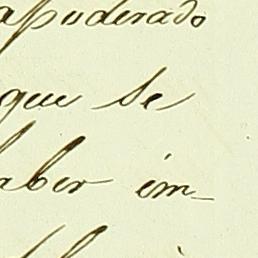 apoderado
que se
aber im-